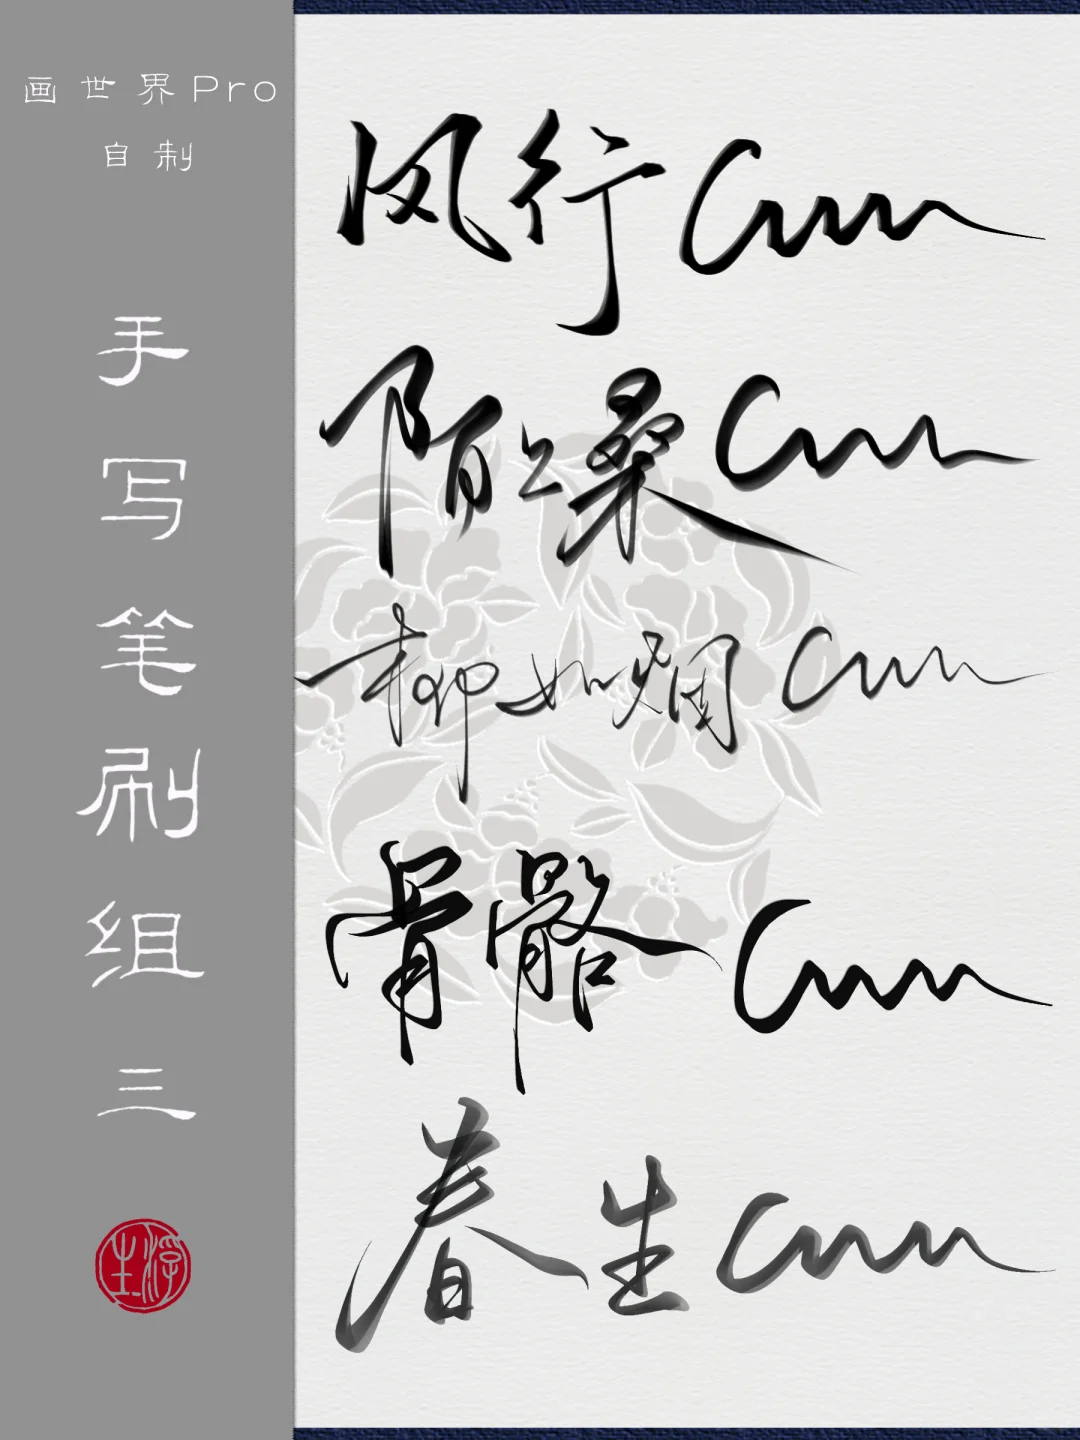 画世界Pro
自制
手写笔刷组三
浮生
风行
陌上桑
柳如烟
骨骼
春生